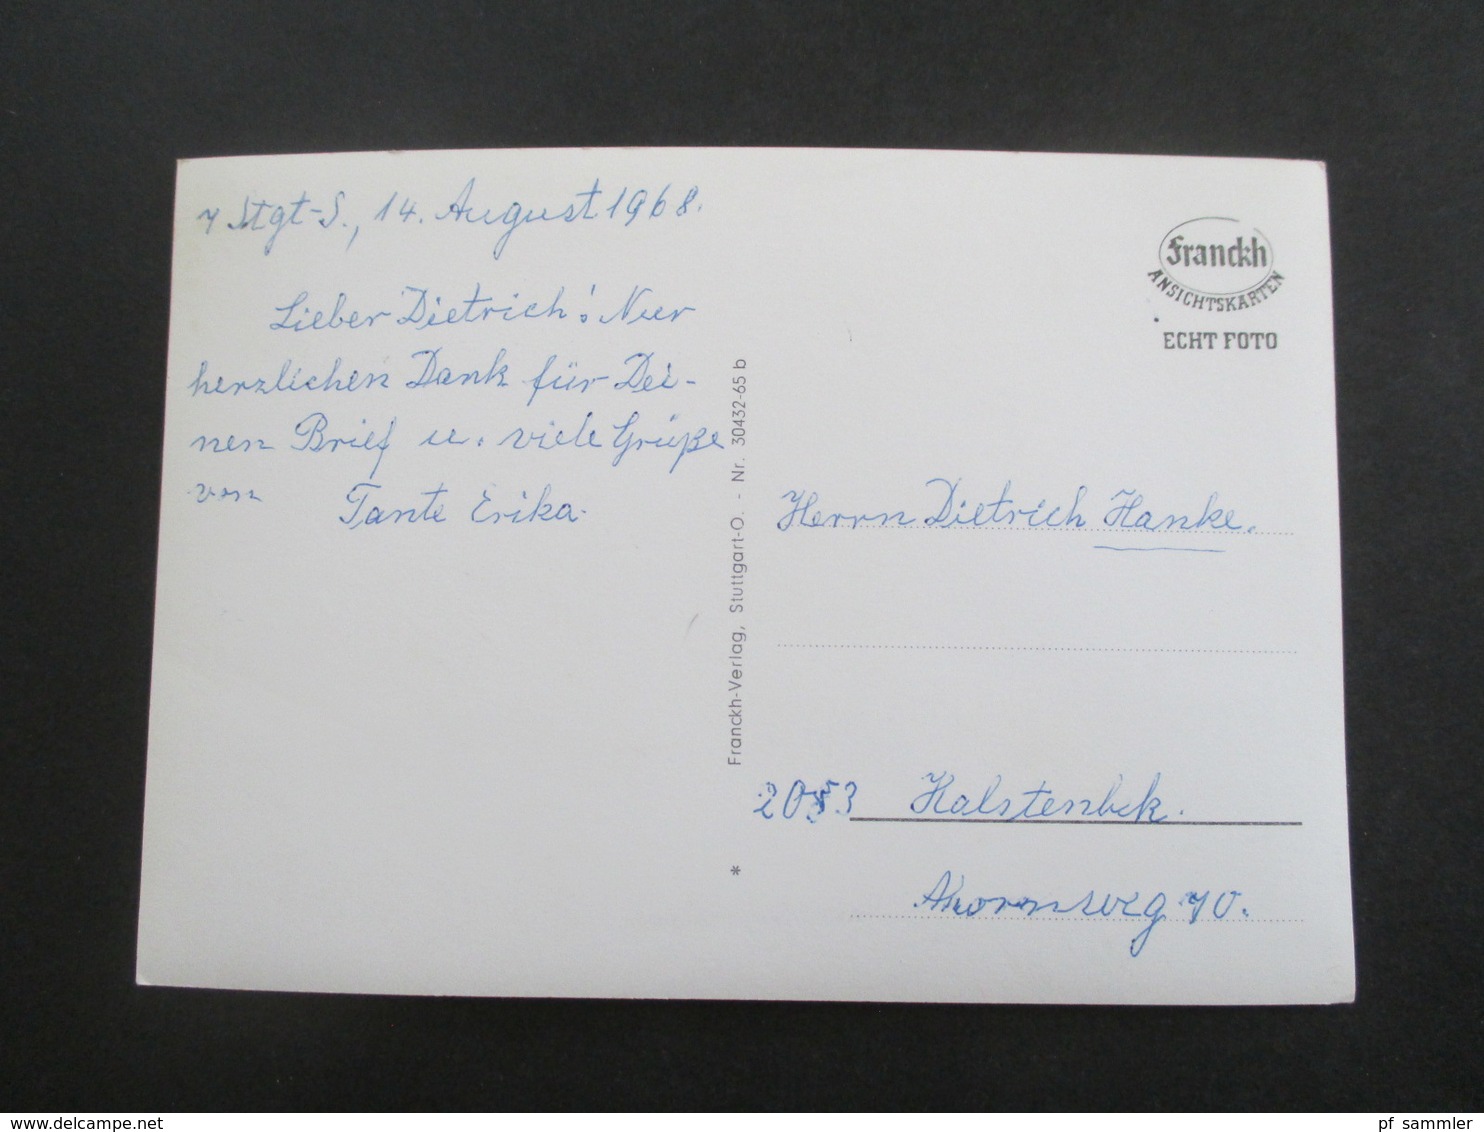 7 Stgt-S., 14. August 1968.
Lieber Dietrich! Nur
herzlichen Dank für Dei-
nen Brief u. viele Grüße
von Tante Erika.
Franckh-Verlag, Stuttgart-O. - Nr. 30432-65 b
*
Franckh
ANSICHTSKARTEN
ECHT FOTO
Herrn Dietrich Hanke.
2083 Halstenbek.
Ahornweg 70.
pf_sammler